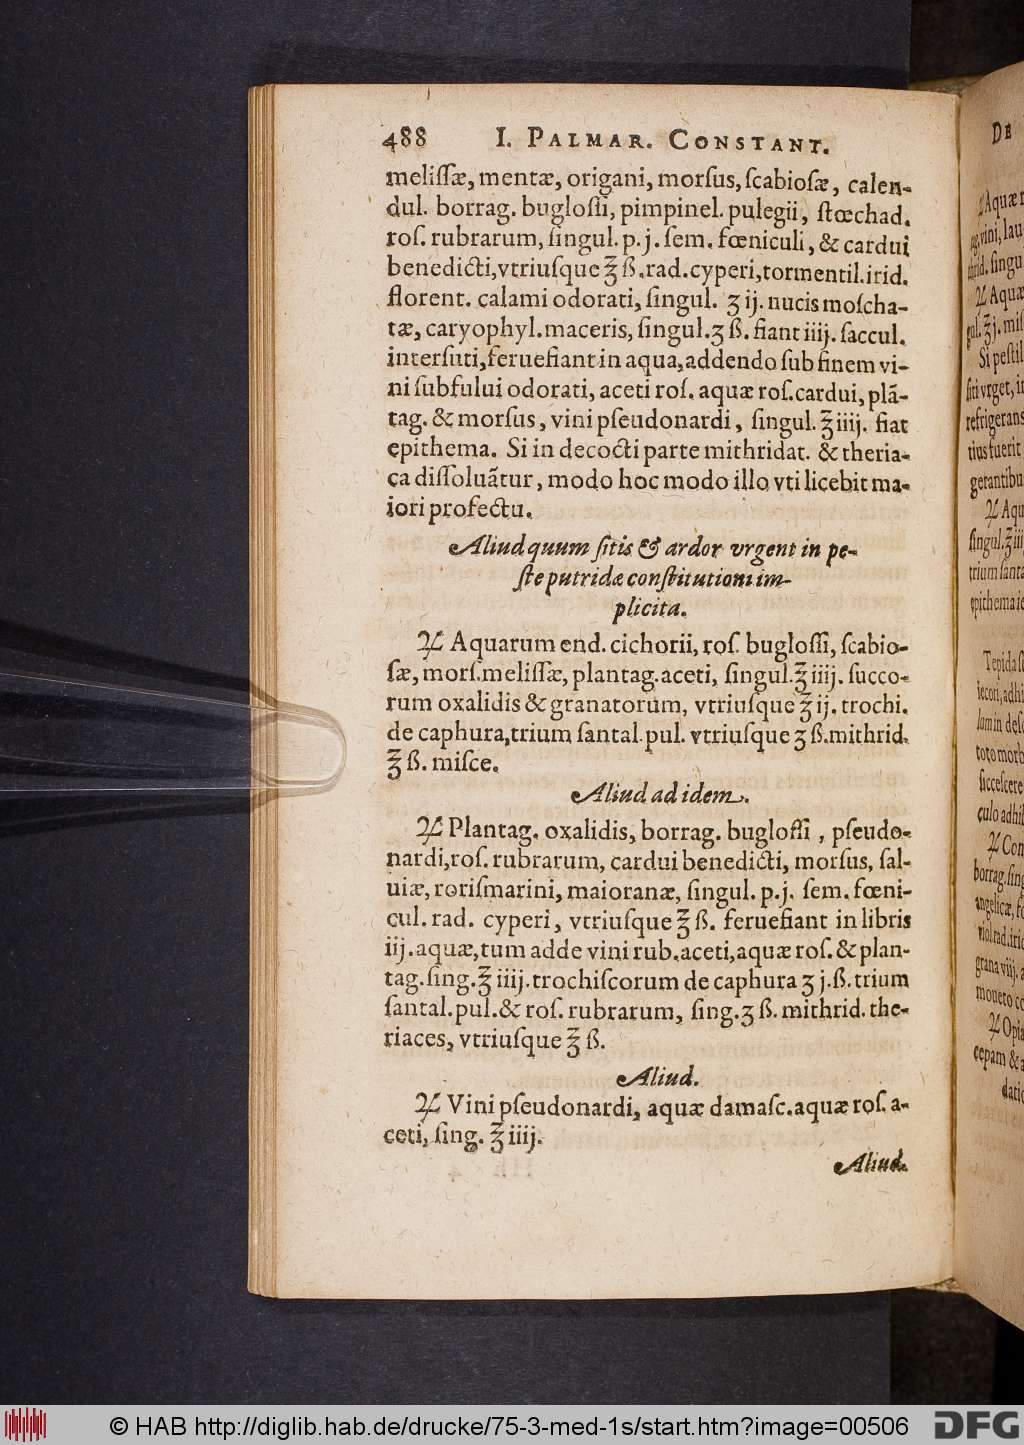 488 I. PALMAR. CONSTANT.
meliſſæ, mentæ, origani, morſus, ſcabioſæ, calen-
dul. borrag. bugloſſi, pimpinel. pulegii, ſtœchad.
roſ. rubrarum, ſingul. p. j. ſem. fœniculi, & cardui
benedicti, vtriuſque ℥ ß. rad. cyperi, tormentil. irid.
florent. calami odorati, ſingul. ʒ ij. nucis moſcha-
tæ, caryophyl. maceris, ſingul. ʒ ß. fiant iiij. ſaccul.
interſuti, feruefiant in aqua, addendo ſub finem vi-
ni ſubfului odorati, aceti roſ. aquæ roſ. cardui, plã-
tag. & morſus, vini pſeudonardi, ſingul. ℥ iiij. fiat
epithema. Si in decocti parte mithridat. & theria-
ca diſſoluãtur, modo hoc modo illo vti licebit ma-
iori profectu.
Aliud quum ſitis & ardor vrgent in pe-
ſte putridæ conſtitutioni im-
plicita.
♃ Aquarum end. cichorii, roſ. bugloſſi, ſcabio-
ſæ, morſ. meliſſæ, plantag. aceti, ſingul. ℥ iiij. ſucco-
rum oxalidis & granatorum, vtriuſque ℥ ij. trochi.
de caphura, trium ſantal. pul. vtriuſque ʒ ß. mithrid.
℥ ß. miſce.
Aliud ad idem.
♃ Plantag. oxalidis, borrag. bugloſſi, pſeudo-
nardi, roſ. rubrarum, cardui benedicti, morſus, ſal-
uiæ, roriſmarini, maioranæ, ſingul. p. j. ſem. fœni-
cul. rad. cyperi, vtriuſque ℥ ß. feruefiant in libris
iij. aquæ, tum adde vini rub. aceti, aquæ roſ. & plan-
tag. ſing. ℥ iiij. trochiſcorum de caphura ʒ j. ß. trium
ſantal. pul. & roſ. rubrarum, ſing. ʒ ß. mithrid. the-
riaces, vtriuſque ℥ ß.
Aliud.
♃ Vini pſeudonardi, aquæ damaſc. aquæ roſ. a-
ceti, ſing. ℥ iiij.
Aliud.
DE
♃ Aquæ
vini, lau
ſingu
♃ Aquæ
℥ j. miſ
Si peſtil
ſiti vrget, in
refrigerans
tius fuerit
gerantibu
♃ Aqu
ſingul. ℥ iij
trium ſanta
epithema
Tepida
iecori, adhi
in
toto morb
ſucceſcere
culo adhi
♃ Con
borrag. ſing
angelicæ, f
viol. rad. iri
grana viij.
moueto co
♃ Opi
cepam & a
datio
© HAB http://diglib.hab.de/drucke/75-3-med-1s/start.htm?image=00506
DFG